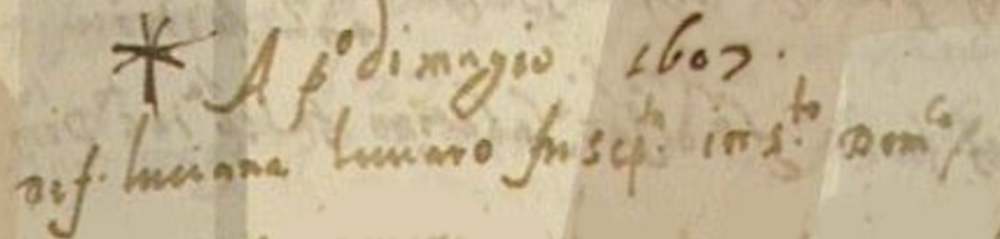 A p.º di magio 1607.
def. luciana lunaro fu sep.ta in s.to Dom.co